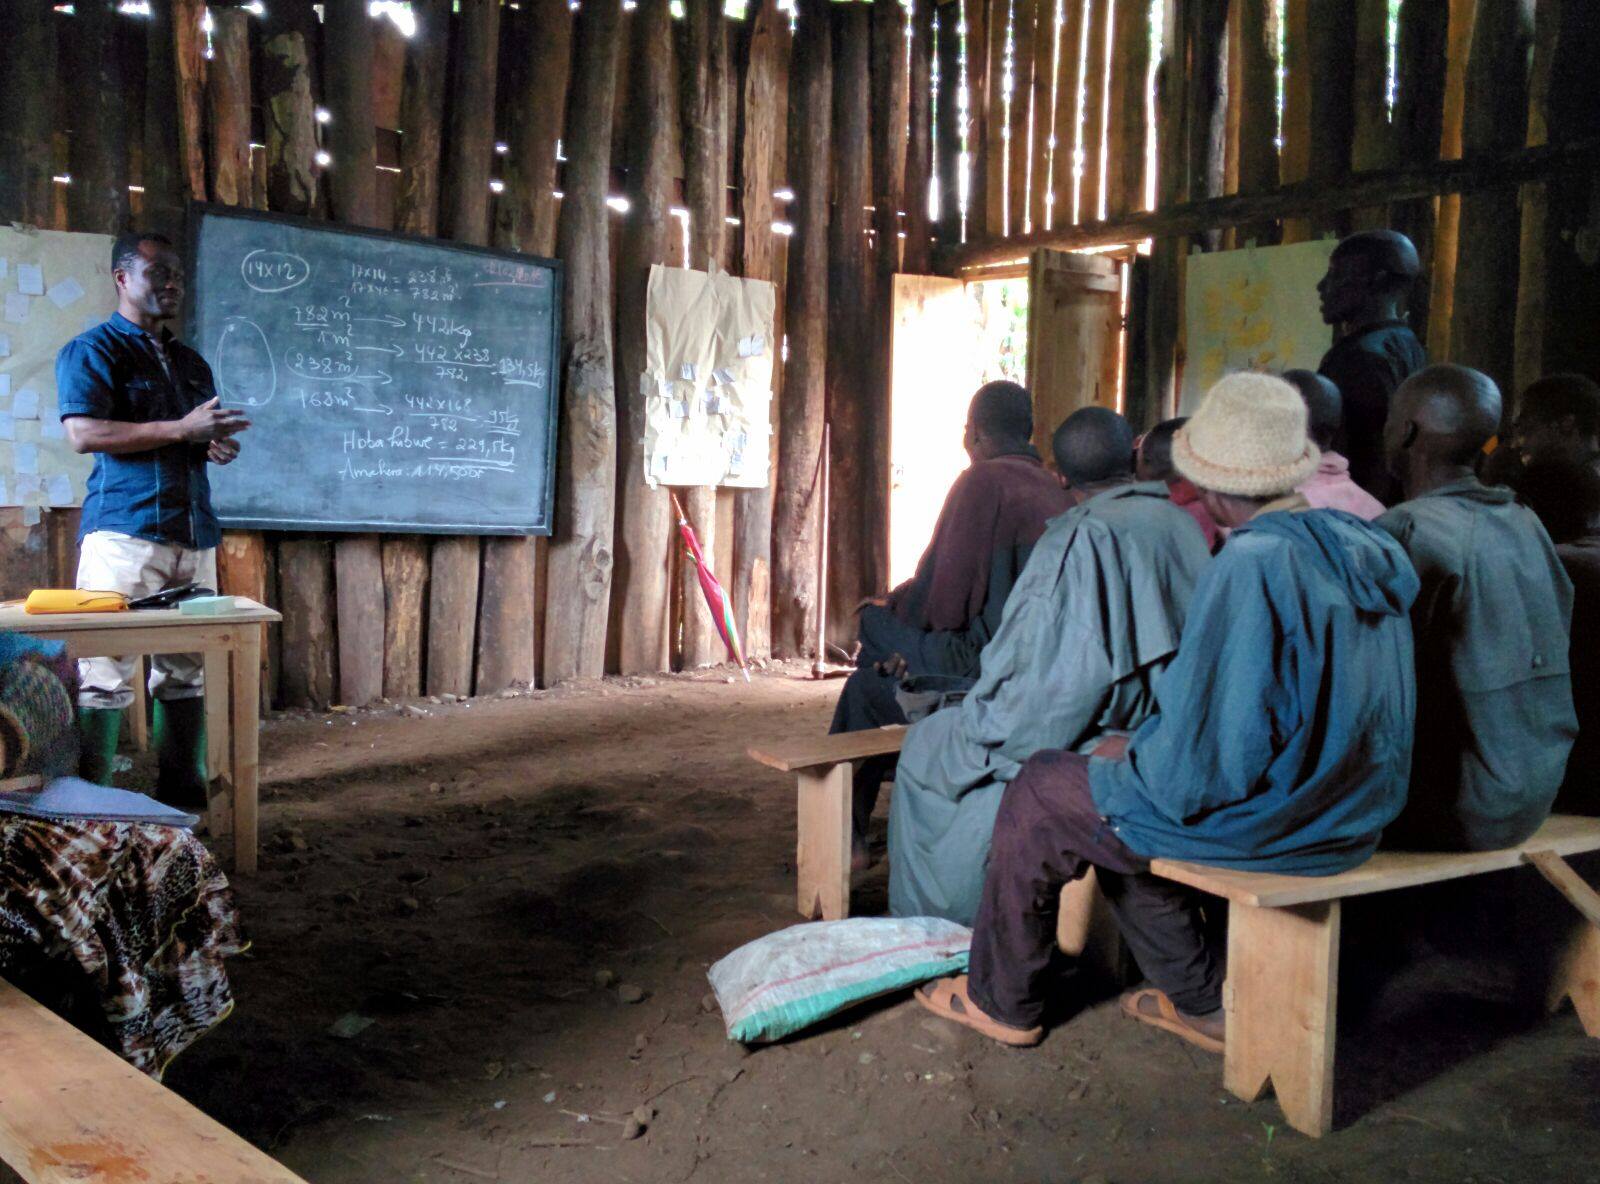 14x12
17x14 = 238 m²
17x46 = 782 m²
782 m² → 442kg
1 m² →
238 m² → 442 x 238 / 782 = 134,5kg
168 m² → 442 x 168 / 782 = 95kg
= 229,5kg
114,500F